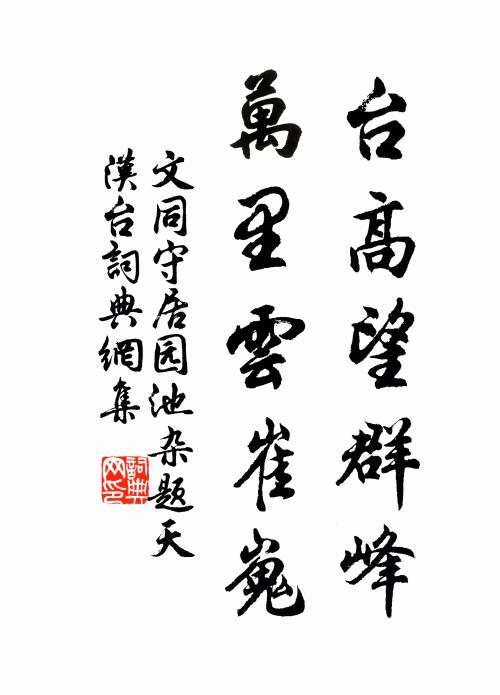 台高望群峰
萬里雲崔嵬
文同守居园池杂题天
漢台詞典網集
詞典
网印